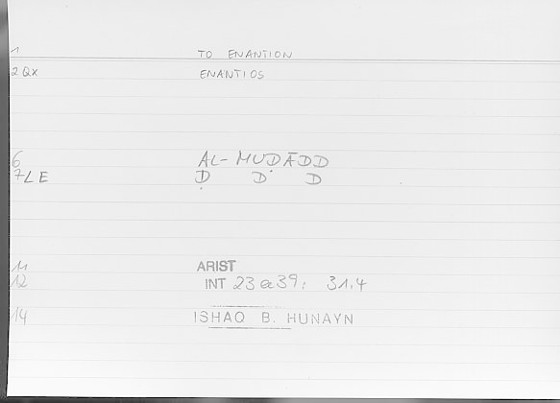 1 TO ENANTION
2 QX ENANTIOS
6 AL-MUḌĀDD
7 LE Ḍ D D
11 ARIST
12 INT 23 a 39; 31.4
14 ISHAQ B. HUNAYN